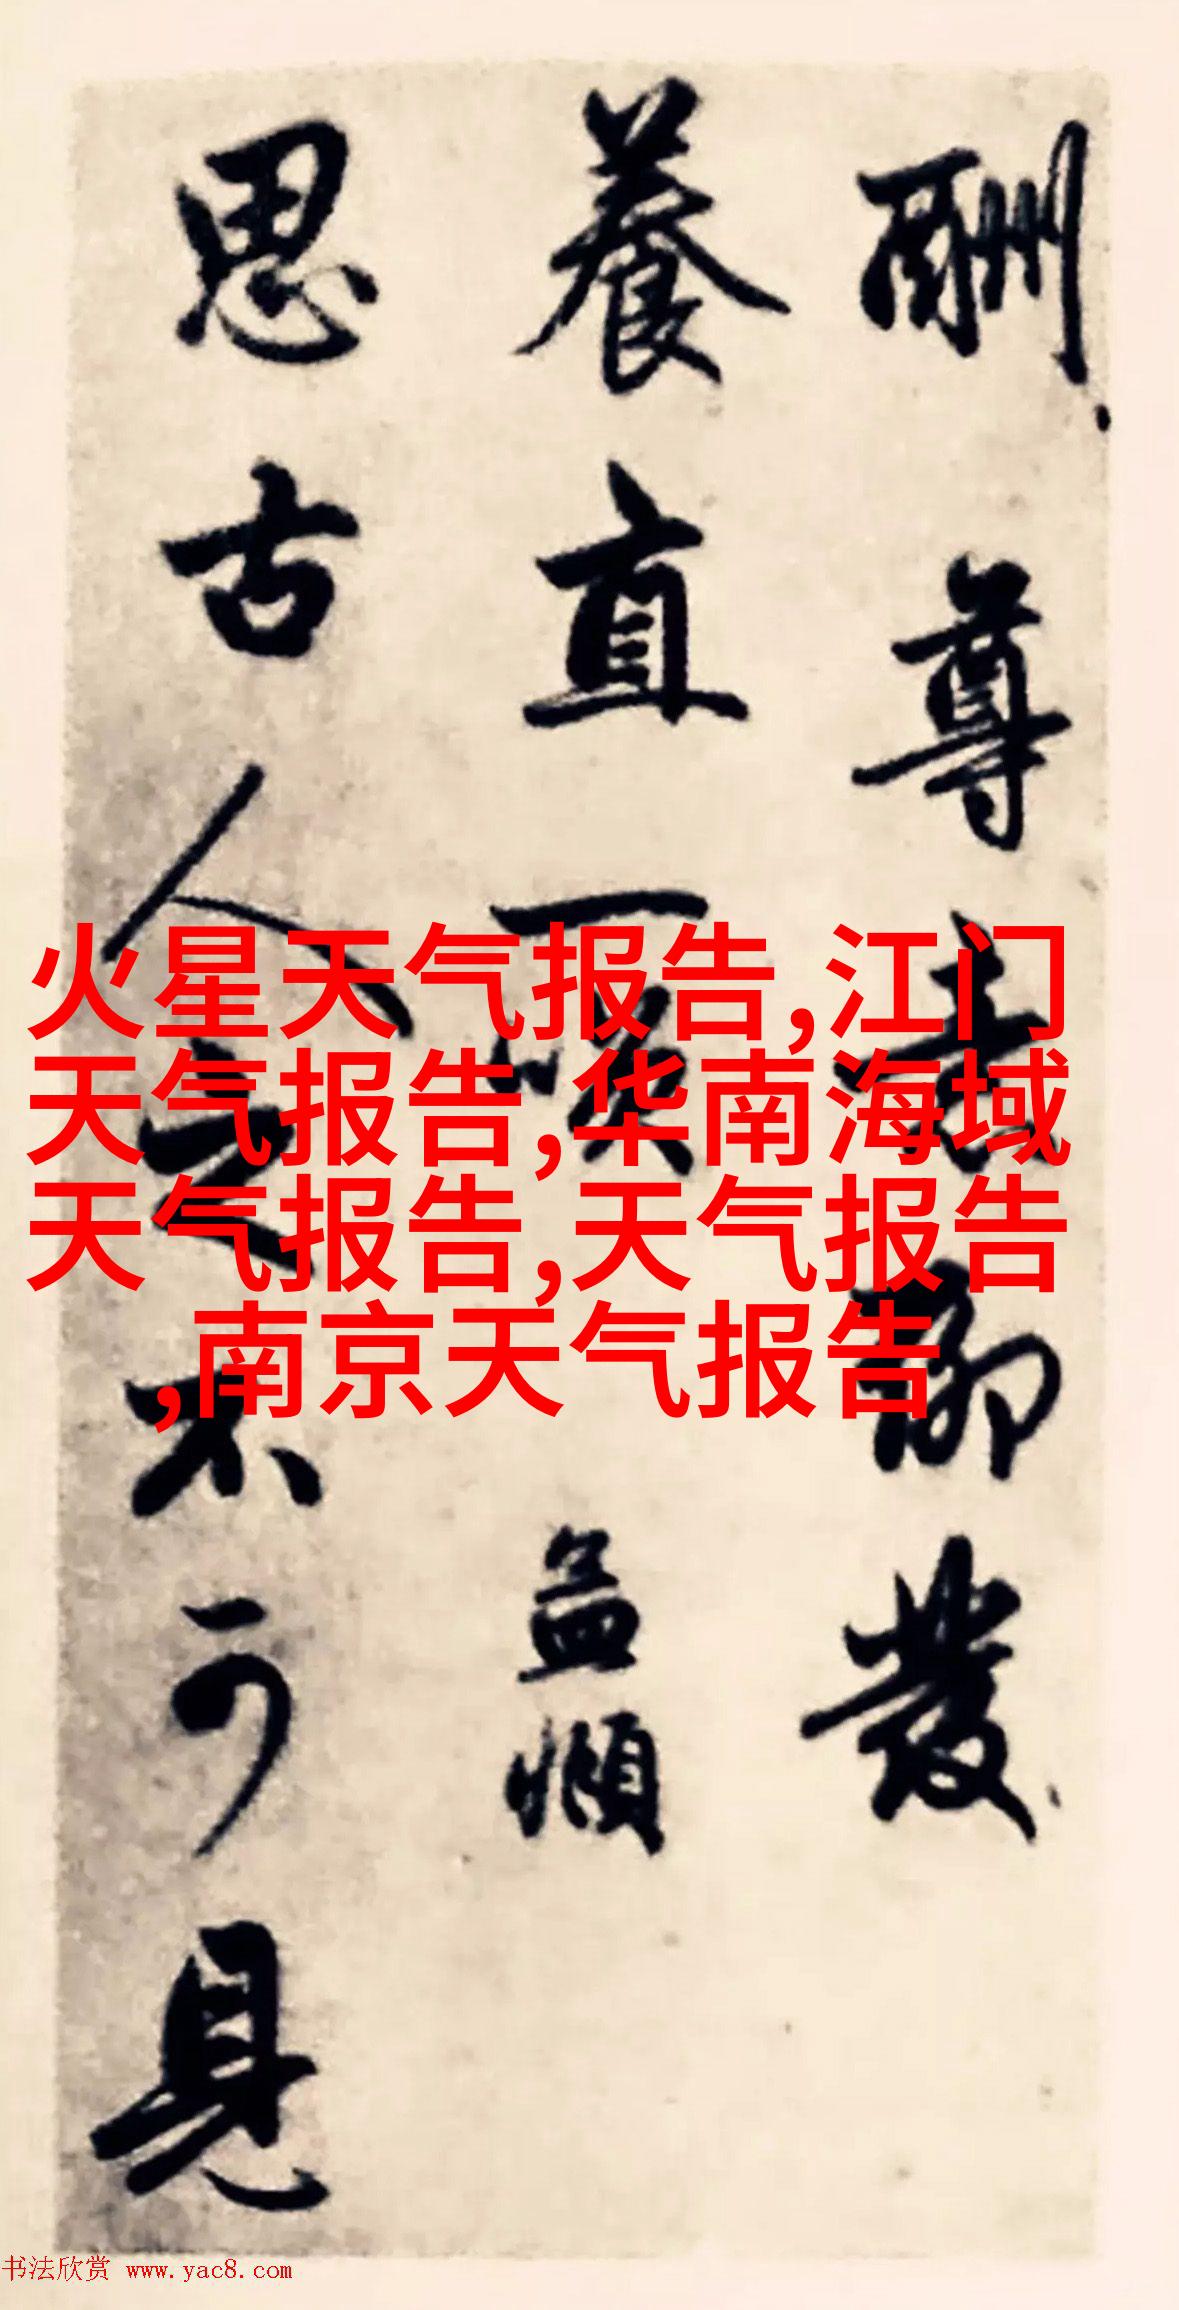 酬尊發
養直孟頫
思古人之不可見
火星天气报告,江门
天气报告,华南海域
天气报告,天气报告
,南京天气报告
书法欣赏 www.yac8.com